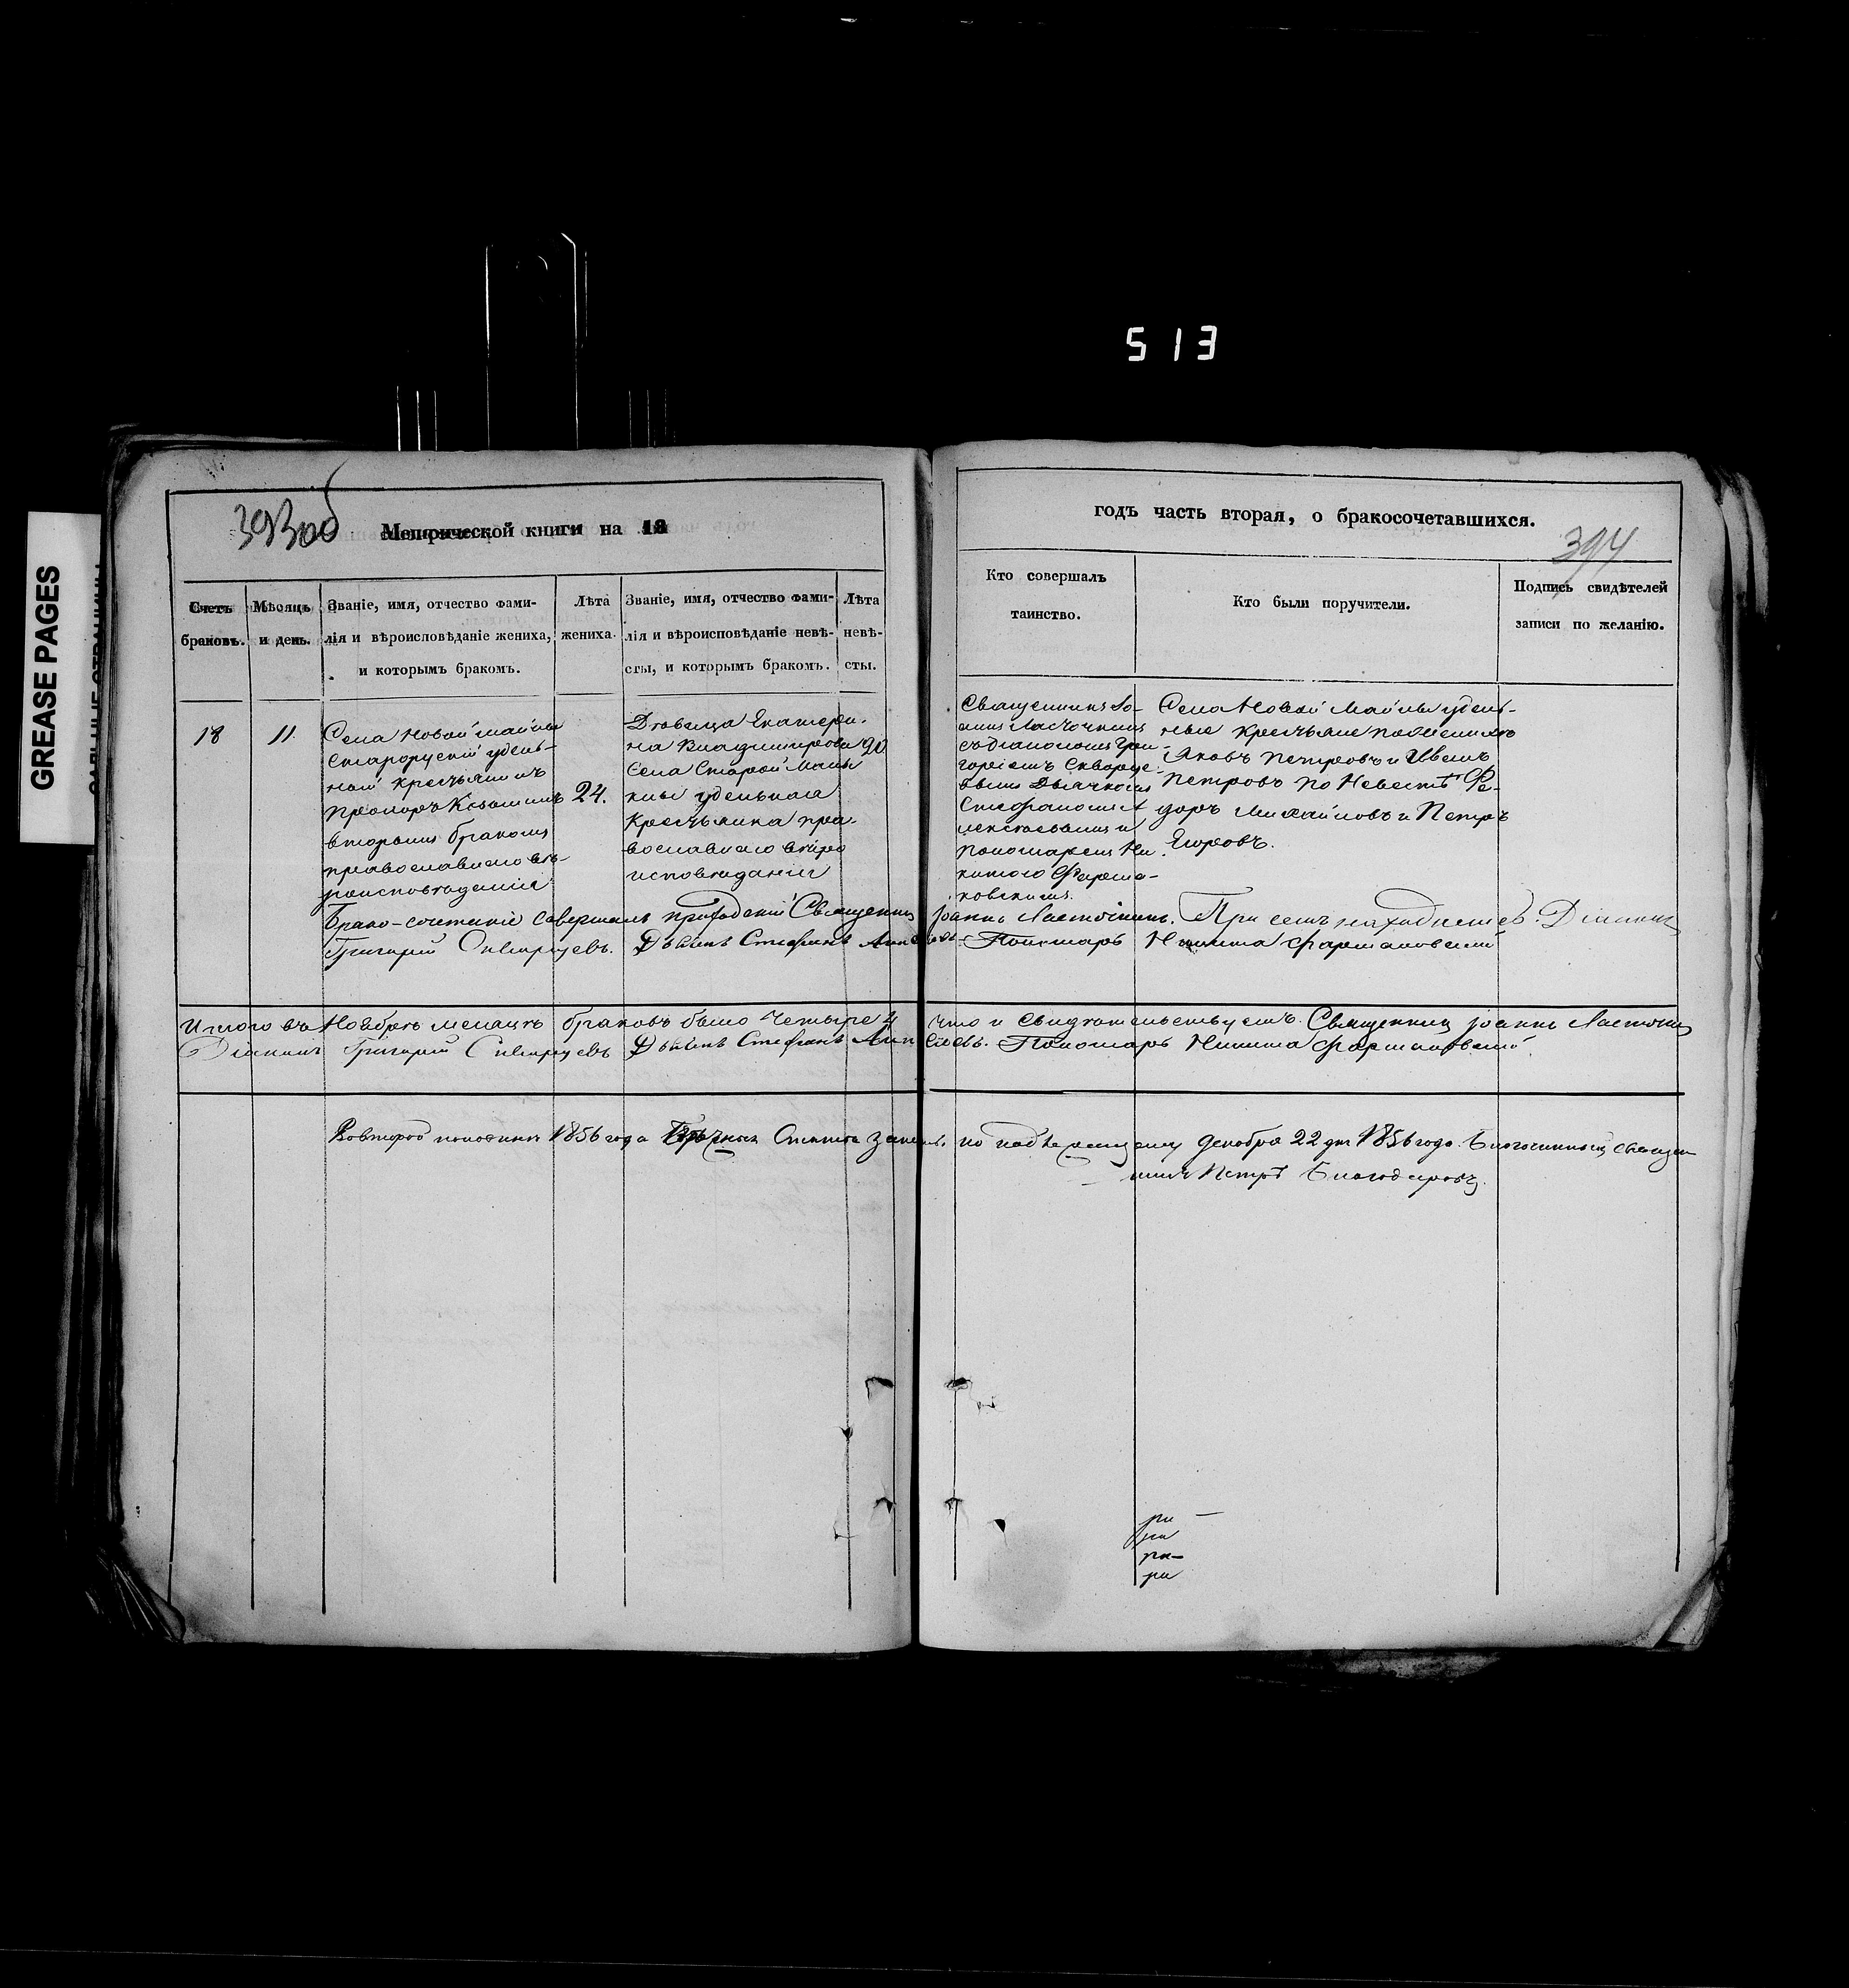 GREASE PAGES
513
393об
Метрической книги на 18
годъ часть вторая, о бракосочетавшихся.
394
Счетъ
браковъ.
Мѣсяцъ
и день.
Званіе, имя, отчество фами-
лія и вѣроисповѣданіе жениха,
и которымъ бракомъ.
Лѣта
жениха.
Званіе, имя, отчество фами-
лія и вѣроисповѣданіе невѣ-
сты, и которымъ бракомъ.
Лѣта
невѣ-
сты.
Кто совершалъ
таинство.
Кто были поручители.
Подпись свидѣтелей
записи по желанію.
18
11.
Села Новой Майны
удель-
ной крестьянинъ
вторымъ бракомъ
православнаго вѣ-
роисповѣданія
24.
Дѣвица Екатери-
на Владимирова
Села Старой Май-
ны удельнаго
крестьянина пра-
вославнаго вѣро
исповѣданія
20
Священникъ Іо-
аннъ Ласточкинъ
съ Діакономъ Гри-
горіемъ Скворце-
вымъ Дьячкомъ
Стефаномъ А
и
пономаремъ Ни-
китою Фарма-
ковскимъ.
Села Новой Майны удель-
ные крестьяне по Женихѣ
Яковъ Петровъ и Иванъ
Петровъ по Невестѣ Фе-
доръ Михайловъ и Петръ
Егоровъ.
Брако-сочетаніе совершалъ приходскій Священникъ Іоаннъ Ласточкинъ. При семъ находились Діаконъ
Григорій Скворцевъ. Дьячекъ Стефанъ Пономарь Никита Фармаковскій
Итого въ Ноябрѣ месяцѣ браковъ было четыре 4 что и свидѣтельствуемъ. Священникъ Іоаннъ Ласточкинъ
Діаконъ Григорій Скворцевъ Дьячекъ Стефанъ Пономарь Никита Фармаковскій.
Во второй половинѣ 1856 года по надлежащему Декабря 22 дня 1856 года. Благочинный Священ-
никъ Петръ Благодаровъ.
ри
ри
ри
ри